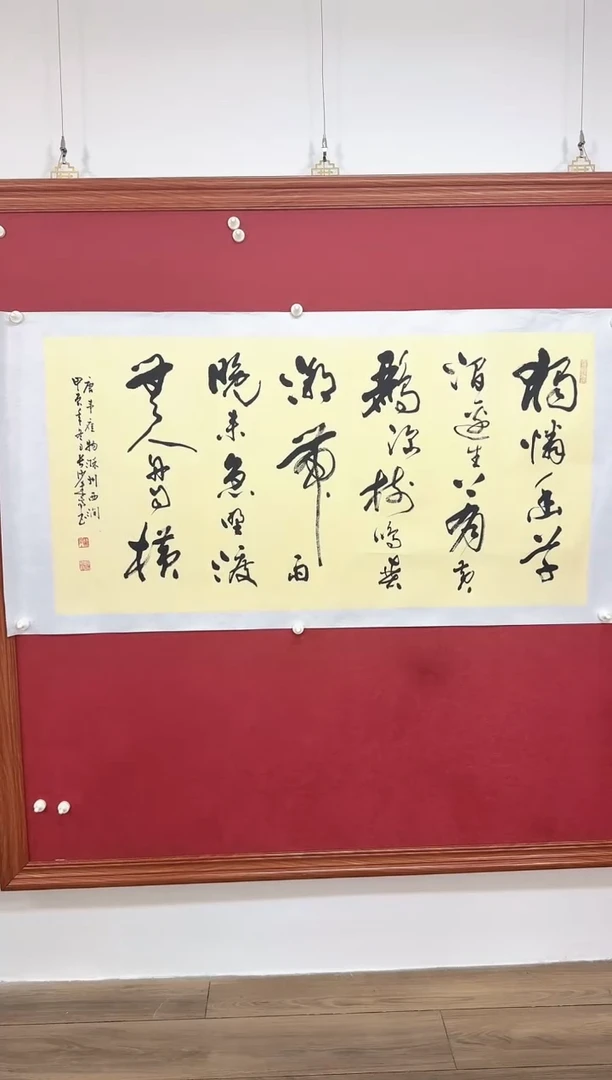 獨憐幽草
澗邊生上有黄
鸝深樹鳴春
潮帶雨
晚来急野渡
無人舟自横
唐韦應物滁州西澗
甲辰